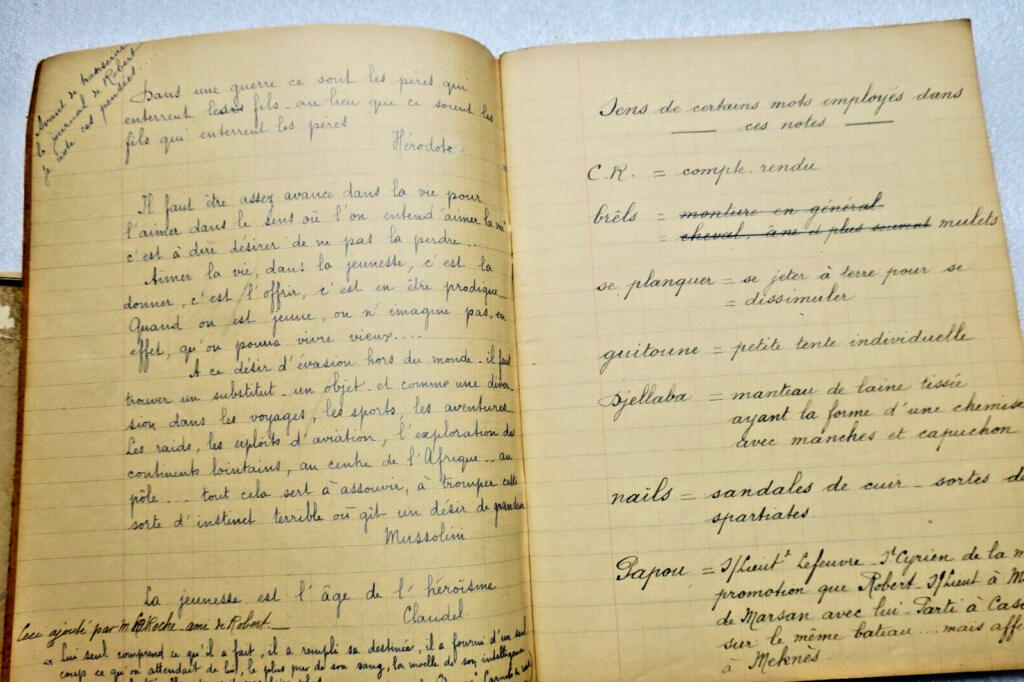 Avant de transcrire
le journal de Robert
je note ces pensées...
Dans une guerre ce sont les pères qui
enterrent les fils - au lieu que ce soient les
fils qui enterrent les pères
Hérodote -
Il faut être assez avancé dans la vie pour
l'aimer dans le sens où l'on entend "aimer la vie"
c'est à dire désirer de ne pas la perdre...
Aimer la vie, dans la jeunesse, c'est la
donner, c'est l'offrir, c'est en être prodigue...
Quand on est jeune, on n'imagine pas, en
effet, qu'on pourra vivre vieux....
A ce désir d'évasion hors du monde - il faut
trouver un substitut - un objet - et comme une diver
sion dans les voyages, les sports, les aventures...
Les raids, les exploits d'aviation, l'exploration des
continents lointains, au centre de l'Afrique... au
pôle.... tout cela sert à assouvir, à tromper cette
sorte d'instinct terrible où gît un désir de grandeur
Mussolini
La jeunesse est l'âge de l'héroïsme
Claudel.
Ceci ajouté par m. LaRoche ami de Robert.
"Lui seul comprend ce qu'il a fait, il a rempli sa destinée, il a fourni d'un seul
coup ce qu'on attendait de lui, le plus pur de son sang, la moelle de son intelligence
Sens de certains mots employés dans
ces notes
C.R. = compte-rendu
brêls = monture en général
= cheval, âne et plus souvent mulets
se planquer = se jeter à terre pour se
= dissimuler
guitoune = petite tente individuelle
Djellaba = manteau de laine tissée
ayant la forme d'une chemise
avec manches et capuchon
naïls = sandales de cuir - sortes de
spartiates.
Papou = S/Lieut^t Lefeuvre - S^t Cyrien de la m
promotion que Robert - S/Lieut à M
de Marsan avec lui - Parti à Casa
sur le même bateau.... mais affe
à Meknès.